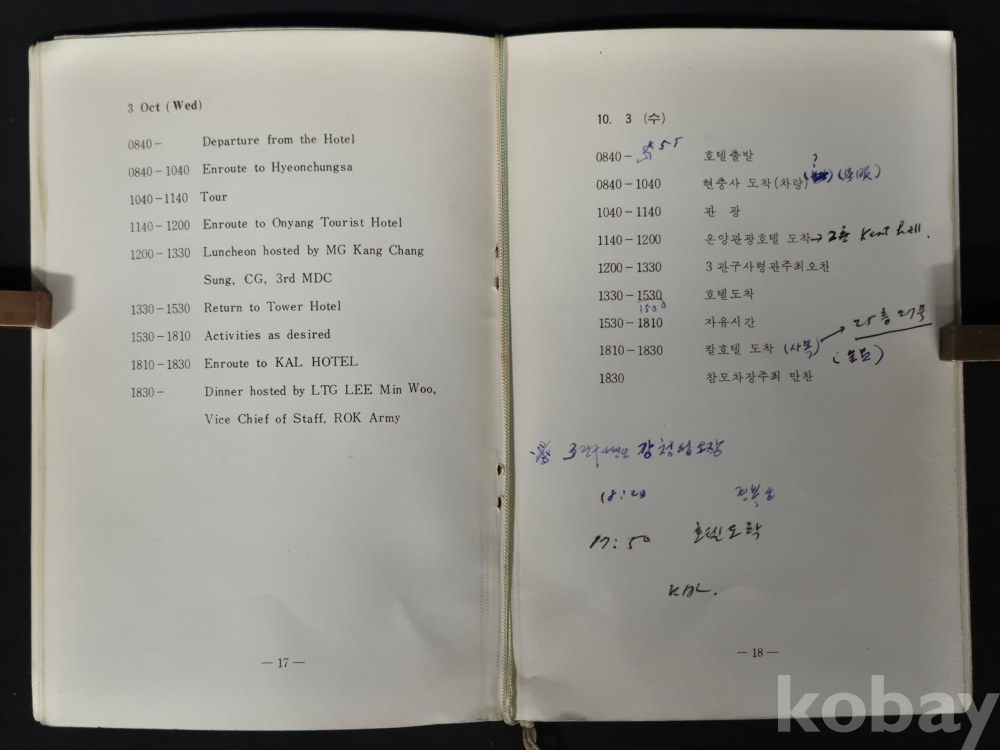 3 Oct (Wed)
0840- Departure from the Hotel
0840-1040 Enroute to Hyeonchungsa
1040-1140 Tour
1140-1200 Enroute to Onyang Tourist Hotel
1200-1330 Luncheon hosted by MG Kang Chang
Sung, CG, 3rd MDC
1330-1530 Return to Tower Hotel
1530-1810 Activities as desired
1810-1830 Enroute to KAL HOTEL
1830- Dinner hosted by LTG LEE Min Woo,
Vice Chief of Staff, ROK Army
— 17 —
10. 3 (수)
0840- 호텔출발
0840-1040 현충사 도착(차량)
1040-1140 관 광
1140-1200 온양관광호텔 도착→ 2층
1200-1330 3관구사령관주최오찬
1330-1530 호텔도착
1500
1530-1810 자유시간
1810-1830 칼호텔 도착 (사복)
1830 참모차장주최 만찬
18:20
17:50 호텔도착
KAL.
— 18 —
kobay